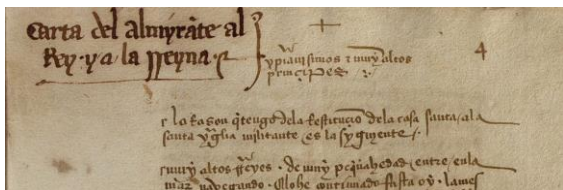 Carta del almyrãte al
Rey · y a la rreyna ·
4
xp̃ianisimos ⁊ muy altos
prinçipes :·
la Razon q̃ tengo de la Restituçiõ de la casa santa / a la
santa yglia militante / es la syguiente /:
muy altos rreyes · de muy peq̃ña hedad / entre / en la
mar navegando · E lo he continuado fasta oy · la mes